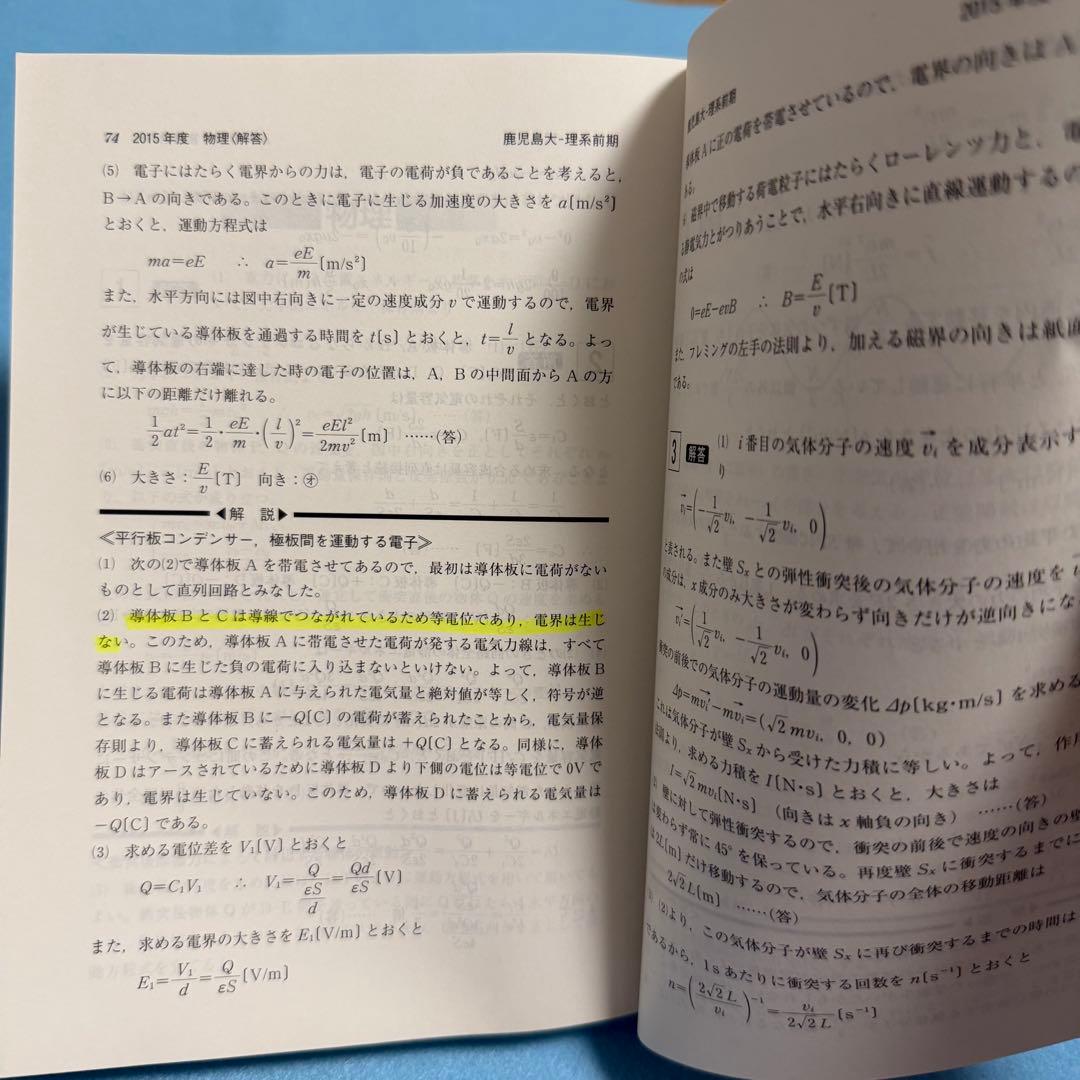 74 2015年度 物理〈解答〉 鹿児島大-理系前期
(5) 電子にはたらく電界からの力は，電子の電荷が負であることを考えると，
B→Aの向きである。このときに電子に生じる加速度の大きさをa〔m/s²〕
とおくと，運動方程式は
ma=eE ∴ a=eE/m〔m/s²〕
また，水平方向には図中右向きに一定の速度成分vで運動するので，電界
が生じている導体板を通過する時間をt〔s〕とおくと，t=l/vとなる。よっ
て，導体板の右端に達した時の電子の位置は，A，Bの中間面からAの方
に以下の距離だけ離れる。
1/2at²=1/2・eE/m・(l/v)²=eEl²/2mv²〔m〕 ……(答)
(6) 大きさ：E/v〔T〕 向き：㋔
◀解 説▶
≪平行板コンデンサー，極板間を運動する電子≫
(1) 次の(2)で導体板Aを帯電させてあるので，最初は導体板に電荷がない
ものとして直列回路とみなした。
(2) 導体板BとCは導線でつながれているため等電位であり，電界は生じ
ない。このため，導体板Aに帯電させた電荷が発する電気力線は，すべて
導体板Bに生じた負の電荷に入り込まないといけない。よって，導体板B
に生じる電荷は導体板Aに与えられた電気量と絶対値が等しく，符号が逆
となる。また導体板Bに−Q〔C〕の電荷が蓄えられたことから，電気量保
存則より，導体板Cに蓄えられる電気量は+Q〔C〕となる。同様に，導体
板Dはアースされているために導体板Dより下側の電位は等電位で0Vで
あり，電界は生じていない。このため，導体板Dに蓄えられる電気量は
−Q〔C〕である。
(3) 求める電位差をV₁〔V〕とおくと
Q=C₁V₁ ∴ V₁=Q/(εS/d)=Qd/εS〔V〕
また，求める電界の大きさをE₁〔V/m〕とおくと
E₁=V₁/d=Q/εS〔V/m〕
鹿児島大-理系前期
導体板Aに正の電荷を帯電させているので，電界の向きはA
ある。
磁界中で移動する荷電粒子にはたらくローレンツ力と，電
る静電気力とがつりあうことで，水平右向きに直線運動するの
の式は
0=eE−evB ∴ B=E/v〔T〕
また，フレミングの左手の法則より，加える磁界の向きは紙面
である。
3 解答 (1) i番目の気体分子の速度v⃗ᵢを成分表示す
り
v⃗ᵢ=(−1/√2vᵢ, −1/√2vᵢ, 0)
と表される。また壁Sₓとの弾性衝突後の気体分子の速度を
の成分は，x成分のみ大きさが変わらず向きだけが逆向きにな
v⃗ᵢ′=(1/√2vᵢ, −1/√2vᵢ, 0)
衝突の前後での気体分子の運動量の変化Δp〔kg·m/s〕を求める
Δp=mv⃗ᵢ′−mv⃗ᵢ=(√2mvᵢ, 0, 0)
これは気体分子が壁Sₓから受けた力積に等しい。よって，作用
法則より，求める力積をI〔N·s〕とおくと，大きさは
I=√2mvᵢ〔N·s〕 (向きはx軸負の向き) ……(答)
壁に対して弾性衝突するので，衝突の前後で速度の向きの壁
は変わらず常に45°を保っている。再度壁Sₓに衝突するまでに
は2L〔m〕だけ移動するので，気体分子の全体の移動距離は
2√2L〔m〕 ……(答)
(2)より，この気体分子が壁Sₓに再び衝突するまでの時間は
であるから，1sあたりに衝突する回数をn〔s⁻¹〕とおくと
n=(2√2L/vᵢ)⁻¹=vᵢ/2√2L〔s⁻¹〕